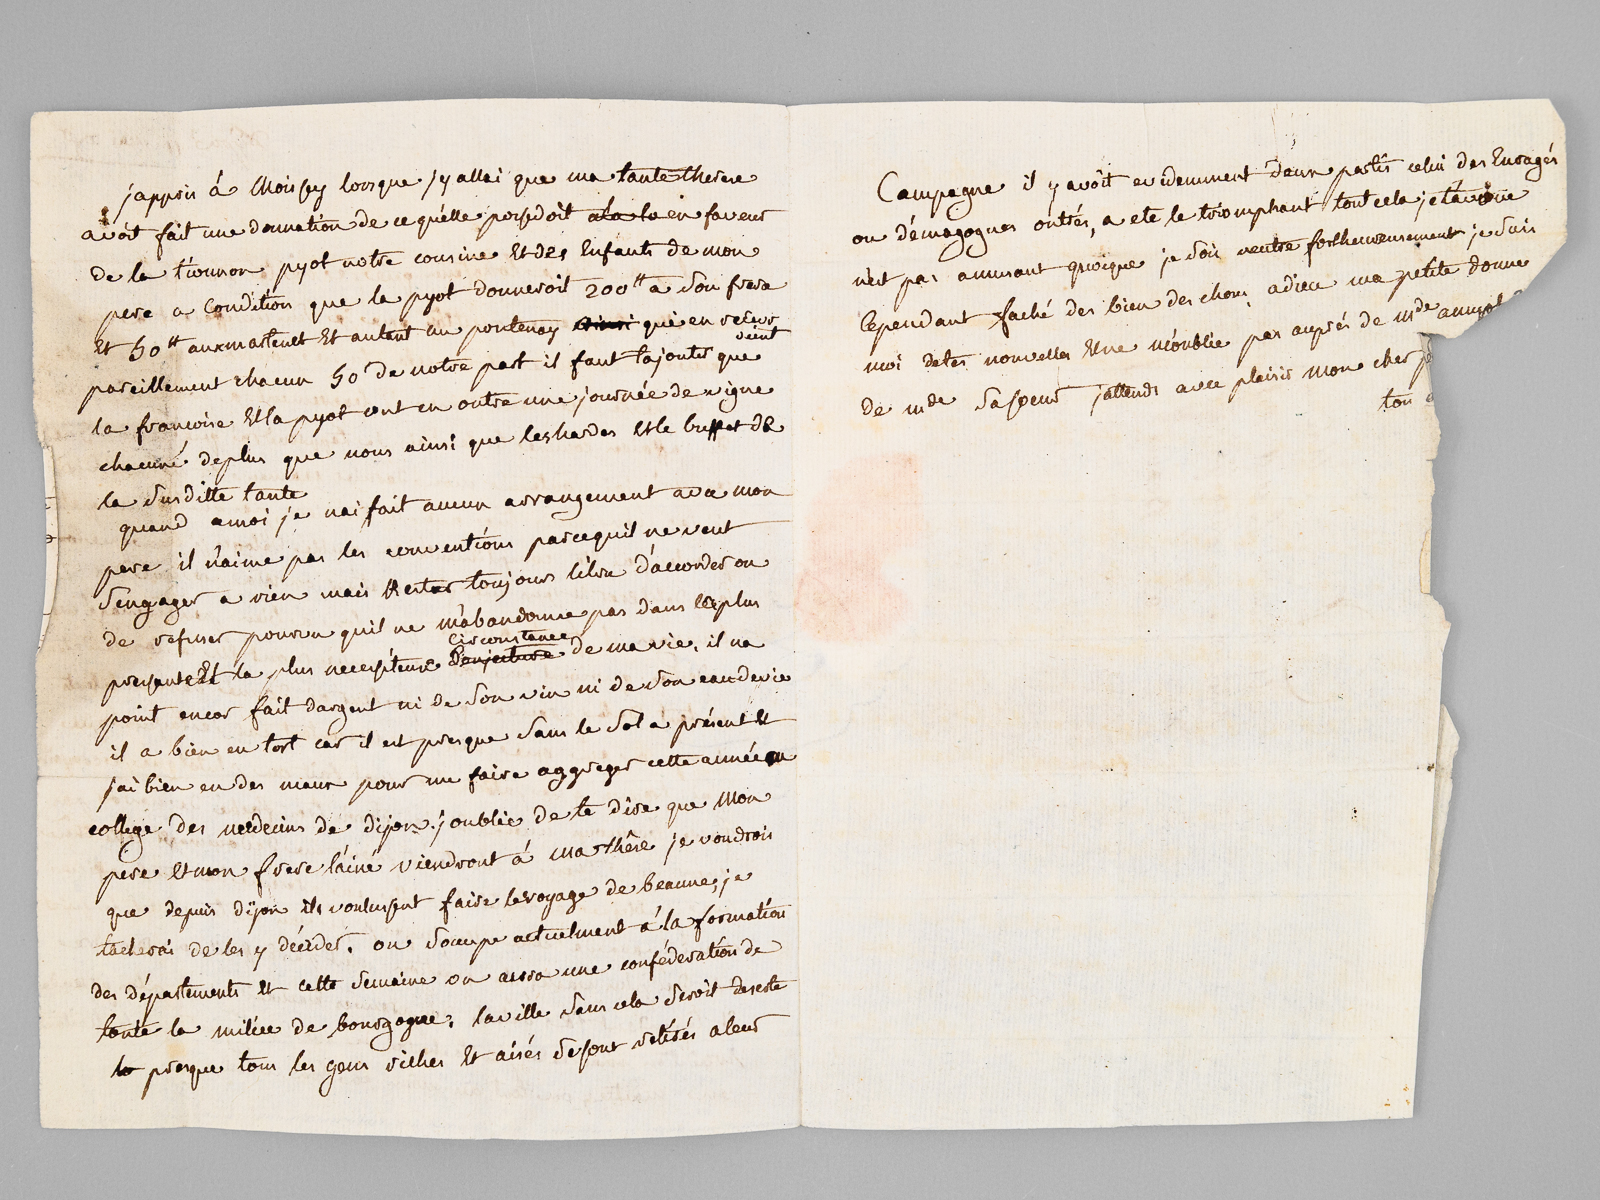 j'appris á Moissey lorsque j'y allai que ma tante therese
avoit fait une donnation de ce quélle possedoit en faveur
de la tionnon pyot notre cousine Et des Enfants de mon
pere a Condition que la pyot donneroit 200 tt a son frere
Et 50 tt aux martenet Et autant au pontenay qui en recevr
oient
pareillement chacun 50 de notre part il faut tajouter que
la francoise Et la pyot ont en outre une journée de vigne
chacune de plus que nous ainsi que les hardes Et le buffet de
la susditte tante
quand a moi je nai fait aucun arrangement avec mon
pere il n'aime pas les conventions parcequil ne veut
s'engager a rien mais Rester toujours libre d'accorder ou
de refuser pourvu quil ne m'abandonne pas dans les plus
circonstance
pressante Et la plus necessiteuse de ma vie, il na
point encor fait dargent ni de son vin ni de son eau de vie
il a bien eu tort car il est presque sans le sol a présent Et
j'ai bien eu des maux pour me faire aggreger cette année au
college des medecins de dijon. j'oublie de te dire que Mon
pere Et mon frere láiné viendront á ma thêse je voudrois
que depuis dijon ils voulussent faire le voyage de beaune, je
tacherai de les y décider. on s'occupe actuelment á la formation
des départements Et cette semaine on aura une confédération de
toute la milice de bourgogne; la ville sans cela seroit deserte
presque tous les gens riches Et aisés se sont retirés a leur
Campagne il y avoit evidemment deux partis celui des Enragés
ou démagogues outrés, a ete le triomphant tout cela je l'avoue
n'est pas amusant quoique je sois neutre fort heureusement je suis
cependant faché des bien des choses, adieu ma petite donne
moi de tes nouvelles Et ne m'oublie pas auprés de mde
de mde sa soeur j'attends avec plaisir mon cher
ton